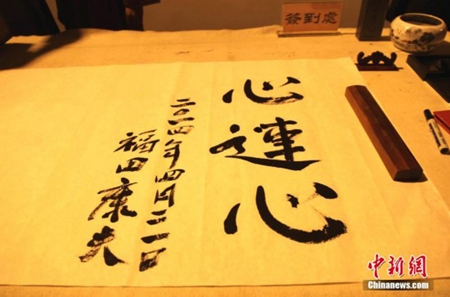 簽到處
心連心
二〇二四年四月日
福田康夫
中新网
www.chinanews.com